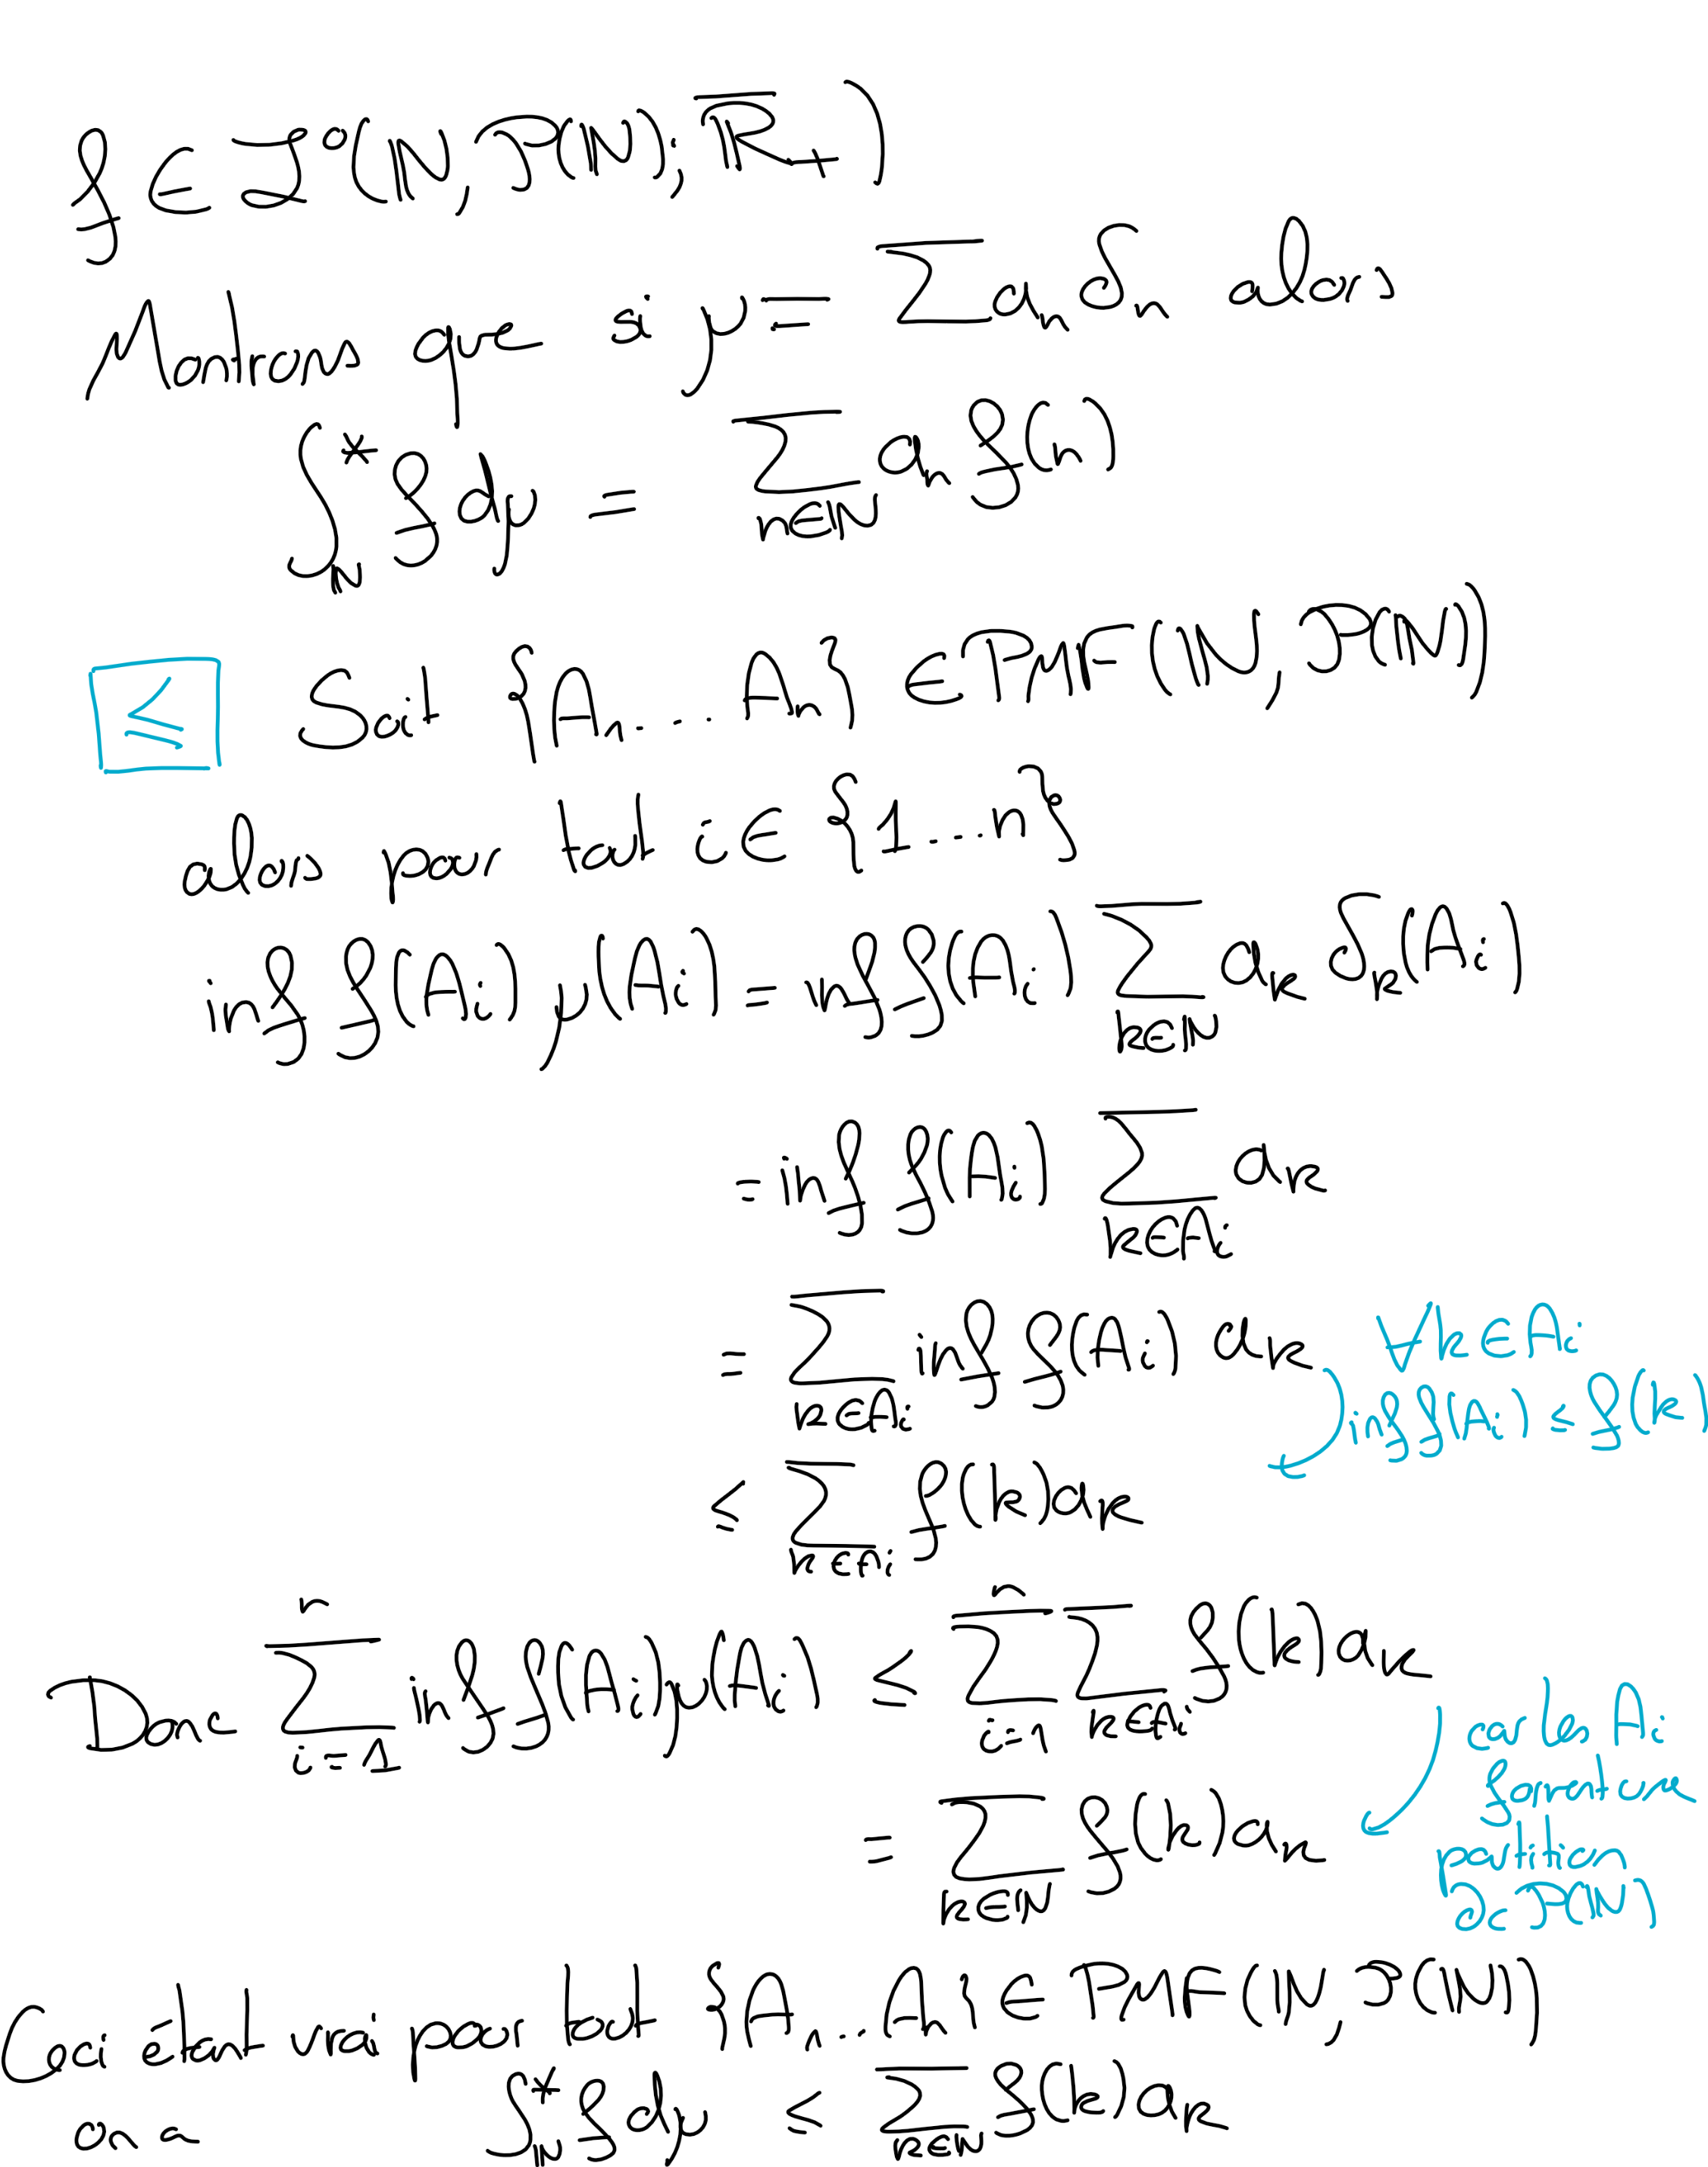 f ∈ L⁰(ℕ, P(ℕ); ℝ̅₊)
Montrons que si μ = ∑ aₙ δₙ alors
∫*_ℕ f dμ = ∑_{n∈ℕ} aₙ f(n)
≤ Soit {A₁ ... Aₙ} ∈ PMF(ℕ, P(ℕ))
alors pour tout i ∈ {1 ... n}
inf f(Ai) μ(Ai) = inf f(Ai) ∑_{k∈ℕ} a_k δ_k(Ai)
= inf f(Ai) ∑_{k∈Ai} a_k
= ∑_{k∈Ai} inf f(Ai) a_k ∀k∈Ai
inf f(Ai) ≤ f(k)
≤ ∑_{k∈Ai} f(k) a_k
Donc ∑_{i=1}^{n} inf f(Ai) μ(Ai) ≤ ∑_{i=1}^{n} ∑_{k∈Ai} f(k) a_k
car les Ai
forment une
partition
de P(ℕ)
= ∑_{k∈ℕ} f(k) a_k
Ceci étant vrai pour tout {A₁ ... Aₙ} ∈ PMF(ℕ, P(ℕ))
on a ∫*_ℕ f dμ ≤ ∑_{k∈ℕ} f(k) a_k